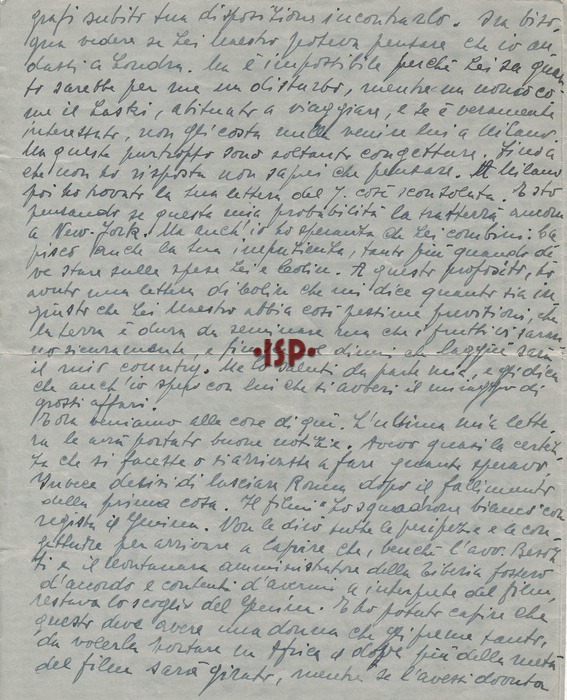 grafi subito sua disposizione incontrarlo. Ma biso-
gna vedere se Lei Maestro poteva pensare che io an-
dassi a Londra. Ma è impossibile perché Lei sa quan-
to sarebbe per me un disturbo, mentre un uomo co-
me il Laski, abituato a viaggiare, e se è veramente
interessato, non gli costa nulla venire lui a Milano.
Ma queste purtroppo sono soltanto congetture. Fino a
che non ho risposta non saprei che pensare. A Milano
poi ho trovato la Sua lettera del 7 così sconsolata. E sto
pensando se questa mia probabilità la tratterrà ancora
a New-York. Ma anch'io ho speranza che Lei combini. Ca-
pisco anche la Sua impazienza, tanto più quando de-
ve stare sulle spese Lei e Colin. A questo proposito, ho
avuto una lettera di Colin che mi dice quanto sia in-
giusto che Lei Maestro abbia così pessime previsioni, che
la terra è dura da seminare ma che i frutti vi saran-
no sicuramente, e dirmi che laggiù sarà
il mio country. Me lo saluti da parte mia, e gli dica
che anch'io spero con lui che si avveri il miraggio di
grossi affari.
Ora veniamo alle cose di qui. L'ultima mia lette-
ra le avrà portato buone notizie. Avevo quasi la certez-
za che si facesse o si arrivasse a fare quanto speravo.
Invece decisi di lasciare Roma dopo il fallimento
della prima cosa. Il film "Lo squadrone bianco" con
regista il Genina. Non le dico tutte le peripezie e le con-
getture per arrivare a capire che, benché l'avv. Besoz-
zi e il amministratore della Tiberia fossero
d'accordo e contenti d'avermi a interprete del film,
restava lo scoglio del Genina. E ho potuto capire che
questo deve avere una donna che gli preme tanto,
da volerla portare in Africa dove più della metà
del film sarà girato, mentre se l'avessi dovuta
•ISP•